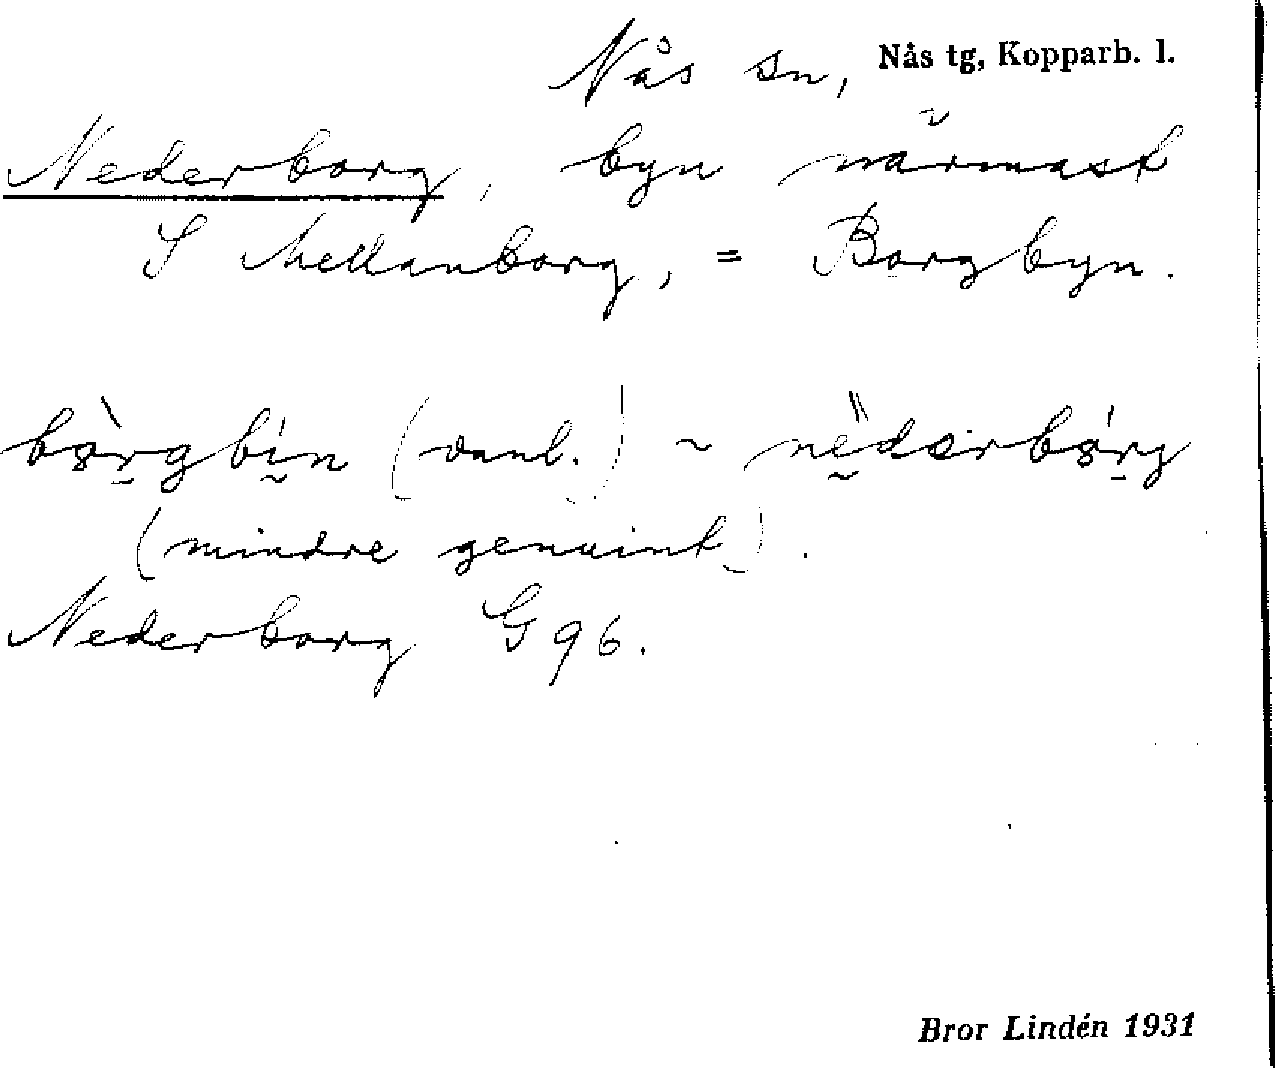 Nås sn, Nås tg, Kopparb. l.
Nederborg, byn närmast
S Mellanborg, = Borgbyn.
bòrgbín (vanl.) ~ nèdərbórg
(mindre genuint).
Nederborg G 96.
Bror Lindén 1931